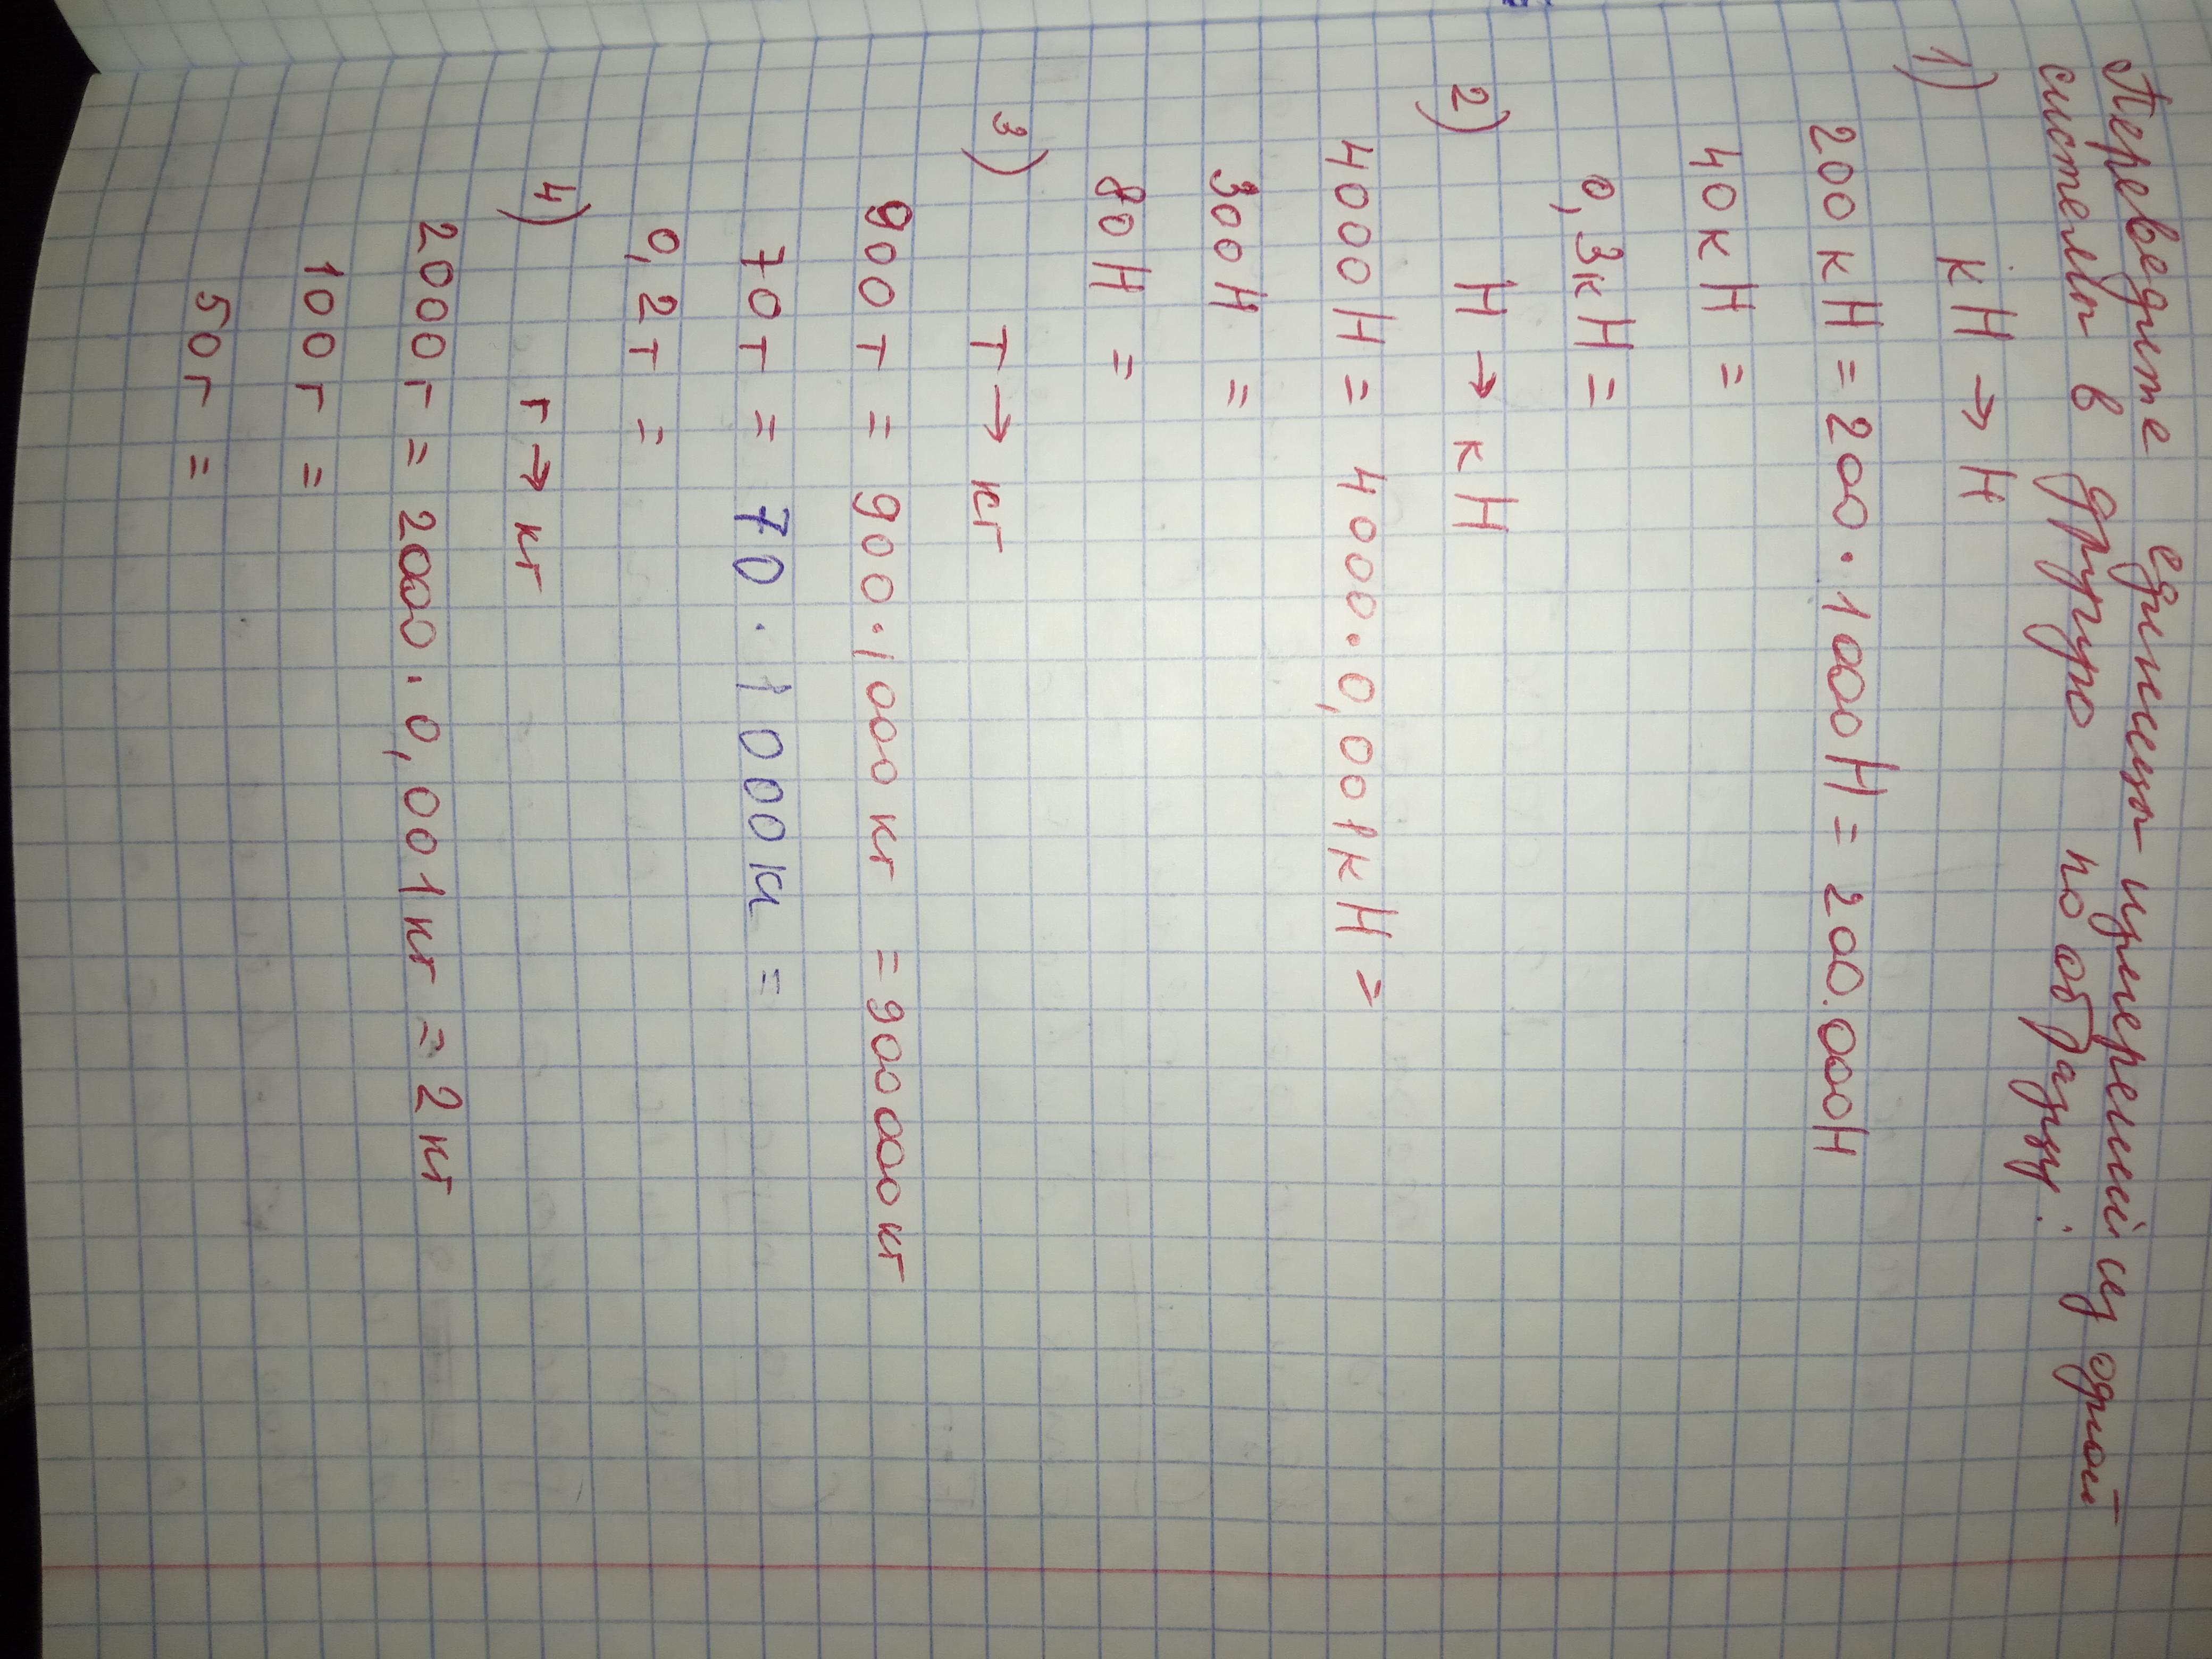 Переведите единицы измерений из одной
системы в другую по образцу:
1) кН → Н
200кН = 200·1000Н = 200.000Н
40кН =
0,3кН =
2) Н → кН
4000Н = 4000·0,001кН =
300Н =
80Н =
3) т → кг
900т = 900·1000кг = 900000кг
70т = 70·1000к =
0,2т =
4) г → кг
2000г = 2000·0,001кг = 2кг
100г =
50г =